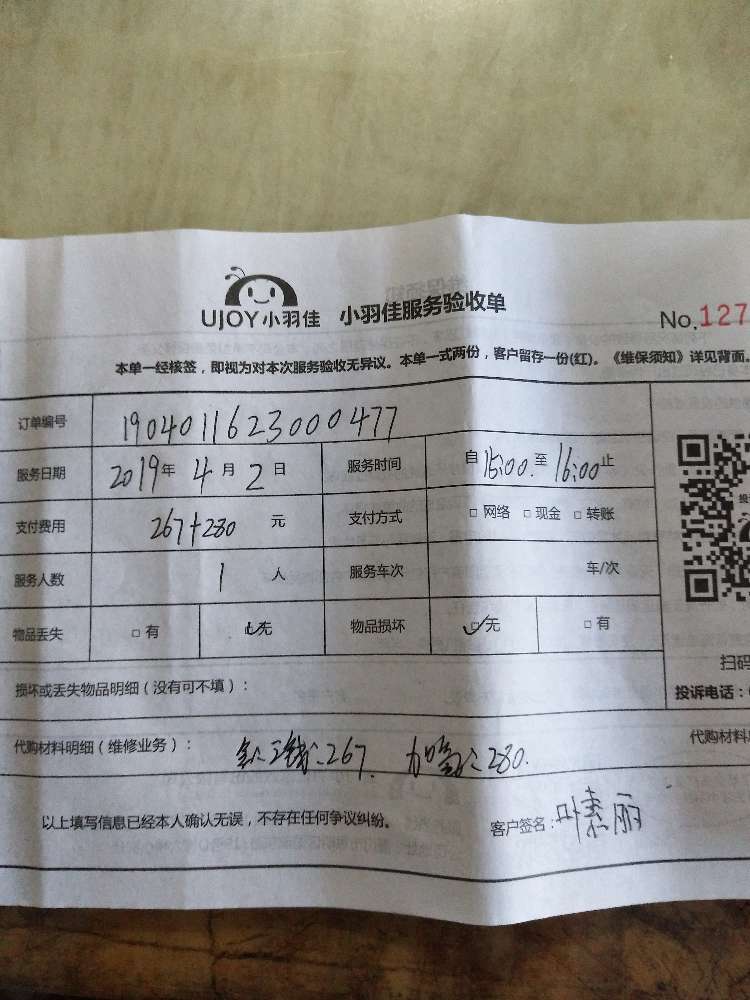 UJOY小羽佳 小羽佳服务验收单
No.127
本单一经核签，即视为对本次服务验收无异议。本单一式两份，客户留存一份(红)。《维保须知》详见背面。
订单编号 1904011623000477
服务日期 2019年 4月 2日 服务时间 自15:00.至16:00止
支付费用 267+280 元 支付方式 □网络 □现金 □转账
服务人数 1 人 服务车次 车/次
物品丢失 □有 □无 物品损坏 □无 □有
扫码
损坏或丢失物品明细（没有可不填）：
投诉电话：
代购材料明细（维修业务）： 267. 280.
代购材料
以上填写信息已经本人确认无误，不存在任何争议纠纷。
客户签名：叶素丽